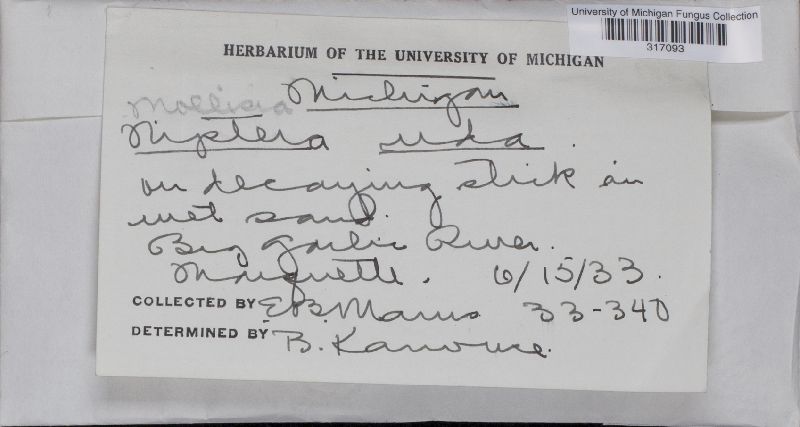 University of Michigan Fungus Collection
317093
HERBARIUM OF THE UNIVERSITY OF MICHIGAN
Michigan
Mollisia
Niptera uda.
on decaying stick in
wet sand.
Big Garlic River.
Marquette. 6/15/33.
COLLECTED BY E.B. Mains 33-340
DETERMINED BY B. Kanouse.